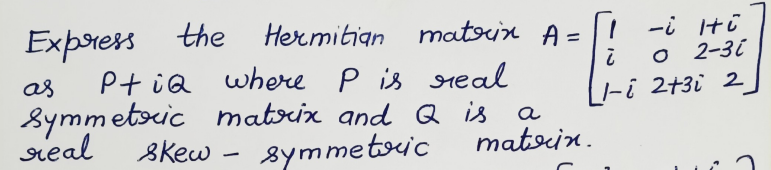 Express the Hermitian matrix A = [1 -i 1+i
i 0 2-3i
1-i 2+3i 2]
as P+iQ where P is real
symmetric matrix and Q is a
real skew - symmetric matrix.